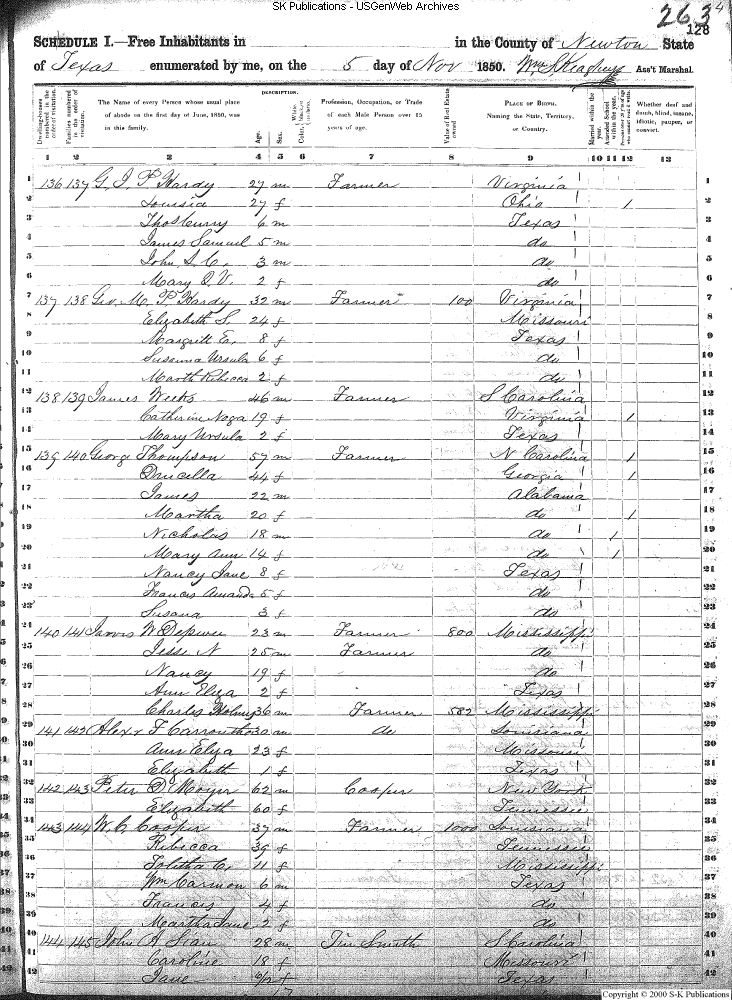 SK Publications - USGenWeb Archives
263 4
128
SCHEDULE I.—Free Inhabitants in in the County of Newton State
of Texas enumerated by me, on the 5 day of Nov 1850. Ass't Marshal.
Dwelling-houses numbered in the order of visitation.
Families numbered in the order of visitation.
The Name of every Person whose usual place of abode on the first day of June, 1850, was in this family.
DESCRIPTION.
Age.
Sex.
Color, White, black, or mulatto.
Profession, Occupation, or Trade of each Male Person over 15 years of age.
Value of Real Estate owned
PLACE OF BIRTH. Naming the State, Territory, or Country.
Married within the year.
Attended School within the year.
Whether deaf and dumb, blind, insane, idiotic, pauper, or convict.
1 2 3 4 5 6 7 8 9 10 11 12 13
1 136 137 G. I. P. Hardy 27 m Farmer Virginia 1
2 Louisia 27 f Ohio 1 2
3 6 m Texas 3
4 James Samuel 5 m do 4
5 John S. C. 3 m do 5
6 Mary Q. V. 2 f do 6
7 137 138 Geo. M. P. Hardy 32 m Farmer 100 Virginia 7
8 Elizabeth S. 24 f Missouri 8
9 Margrett E. 8 f Texas 9
10 Susanna Ursula 6 f do 10
11 Marth Rebecca 2 f do 11
12 138 139 James Weeks 46 m Farmer S Carolina 12
13 Catherine 19 f Virginia 1 13
14 Mary Ursula 2 f Texas 14
15 139 140 George Thompson 57 m Farmer N Carolina 1 15
16 Drucella 44 f Georgia 1 16
17 James 22 m Alabama 17
18 Martha 20 f do 1 18
19 Nicholas 18 m do 1 19
20 Mary Ann 14 f do 1 20
21 Nancy Jane 8 f Texas 21
22 Francis Amanda 5 f do 22
23 Susana 3 f do 23
24 140 141 Jarvis W Depwee 23 m Farmer 800 Mississippi 24
25 Jesse N 25 m Farmer do 25
26 Nancy 19 f do 26
27 Ann Eliza 2 f Texas 27
28 Charles 36 m Farmer 582 Mississippi 28
29 141 142 Alexr F Carrowtho 30 m do Louisiana 29
30 Ann Eliza 23 f Missouri 30
31 Elizabeth 1 f Texas 31
32 142 143 Peter D Moyer 62 m Cooper New York 32
33 Elizabeth 60 f Tennessee 33
34 143 144 W. C. Cooper 37 m Farmer 1000 Louisiana 34
35 Rebecca 39 f Tennessee 35
36 Tolitha C. 11 f Mississippi 36
37 Wm Carmon 6 m Texas 37
38 Francis 4 f do 38
39 Martha Jane 2 f do 39
40 144 145 John A Sian 28 m Tin Smith S Carolina 40
41 Caroline 18 f Missouri 41
42 Jane f Texas 42
Copyright © 2000 S-K Publications